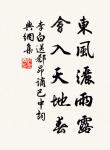 東風灑雨露
會入天地春
李白送郄昂謫巴中詞
典網集